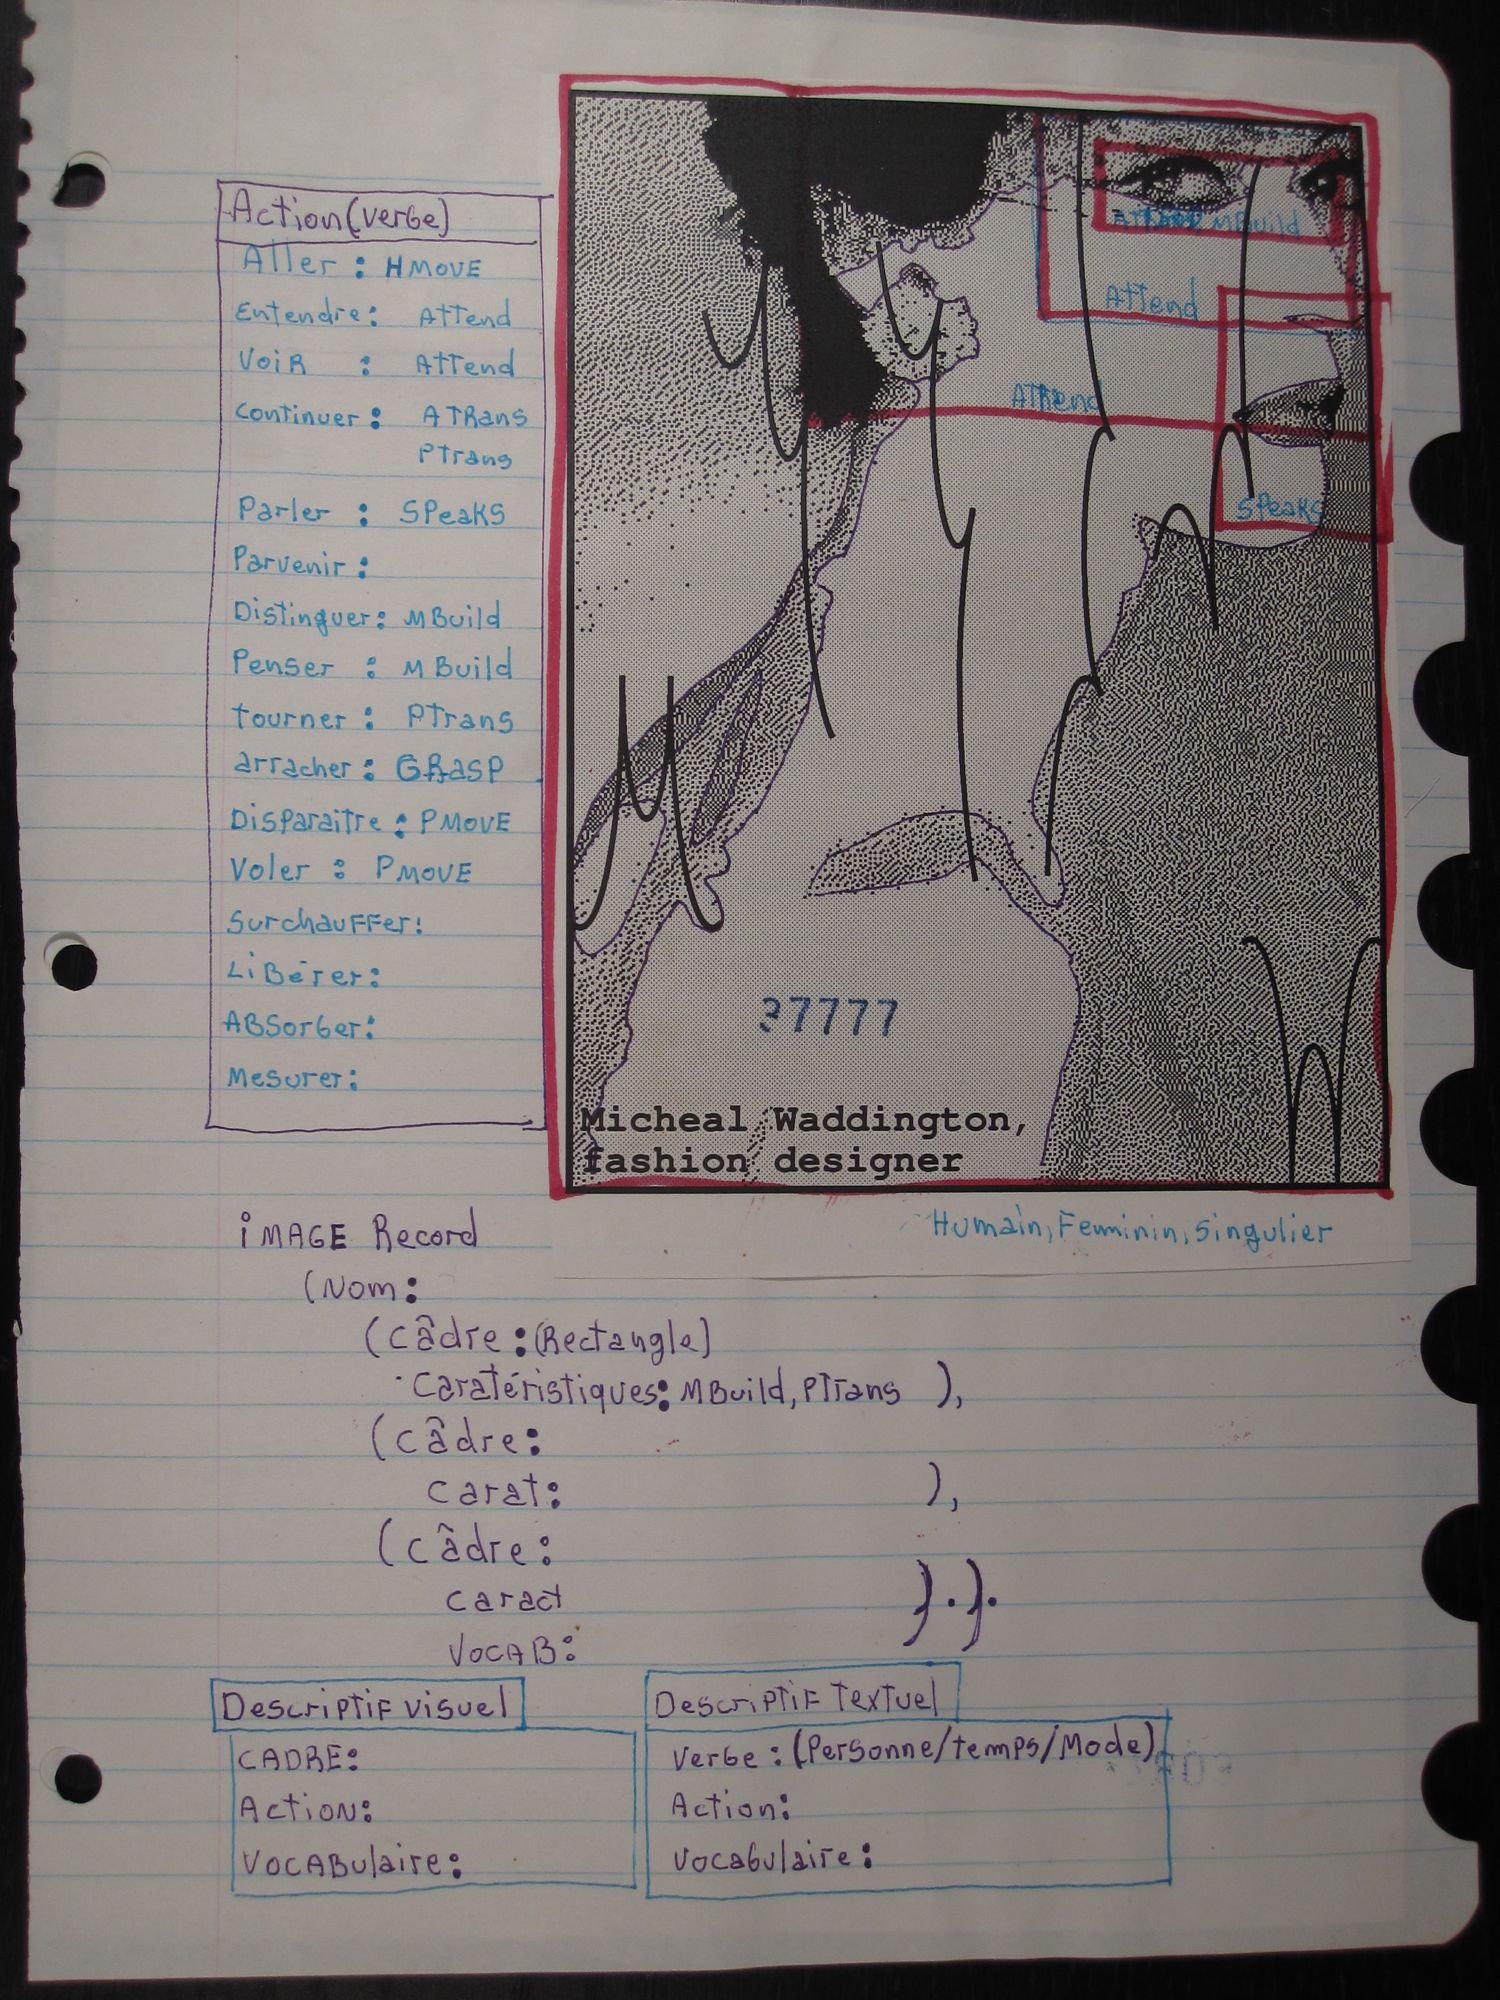 Action(verbe)
Aller : HMOVE
Entendre: Attend
Voir : Attend
Continuer: ATRans
PTrans
Parler : SPeaKS
Parvenir :
Distinguer: MBuild
Penser : MBuild
tourner : PTrans
arracher: GRasP
Disparaitre : PMOVE
Voler : PMOVE
Surchauffer:
Libérer:
ABSorber:
Mesurer:
MBuild
Attend
Attend
SPeaKS
37777
Micheal Waddington,
fashion designer
Humain, Feminin, Singulier
iMAGE Record
(Nom:
(câdre:(Rectangle)
Caratéristiques: MBuild, PTrans ),
(câdre:
carat: ),
(câdre:
caract ).).
VOCAB:
Descriptif visuel
CADRE:
Action:
VOCABulaire:
Descriptif textuel
Verbe: (Personne/temps/Mode)
Action:
Vocabulaire: